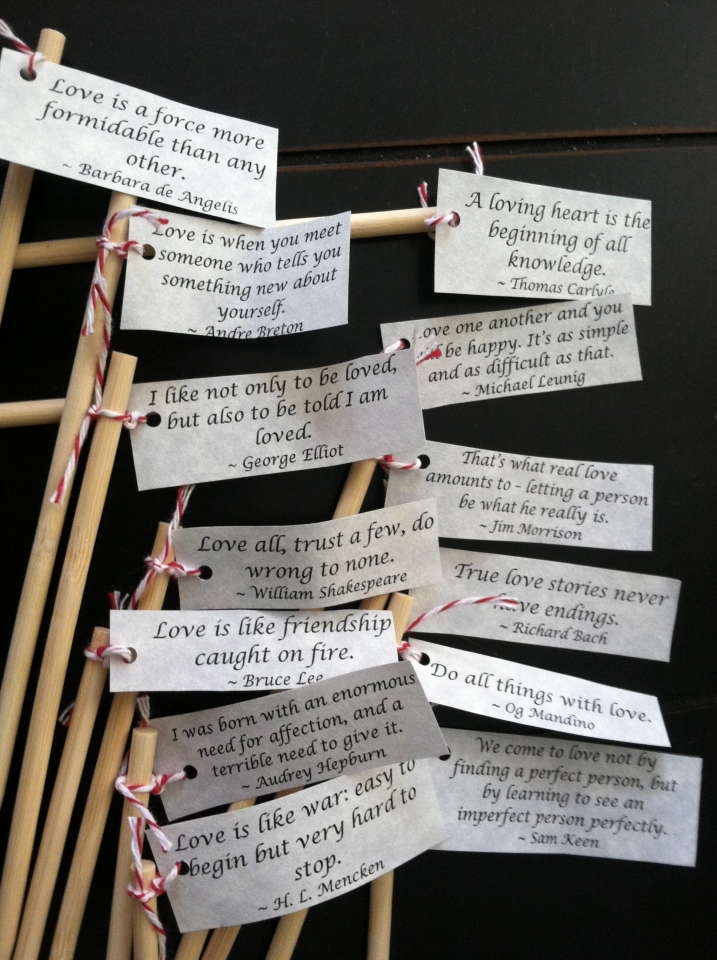 Love is a force more
formidable than any
other.
~ Barbara de Angelis
A loving heart is the
beginning of all
knowledge.
~ Thomas Carlyle
Love is when you meet
someone who tells you
something new about
yourself.
~ Andre Breton
ove one another and you
be happy. It's as simple
and as difficult as that.
~ Michael Leunig
I like not only to be loved,
but also to be told I am
loved.
~ George Elliot
That's what real love
amounts to - letting a person
be what he really is.
~ Jim Morrison
Love all, trust a few, do
wrong to none.
~ William Shakespeare
True love stories never
have endings.
~ Richard Bach
Love is like friendship
caught on fire.
~ Bruce Lee
Do all things with love.
~ Og Mandino
I was born with an enormous
need for affection, and a
terrible need to give it.
~ Audrey Hepburn
We come to love not by
finding a perfect person, but
by learning to see an
imperfect person perfectly.
~ Sam Keen
Love is like war: easy to
begin but very hard to
stop.
~ H. L. Mencken